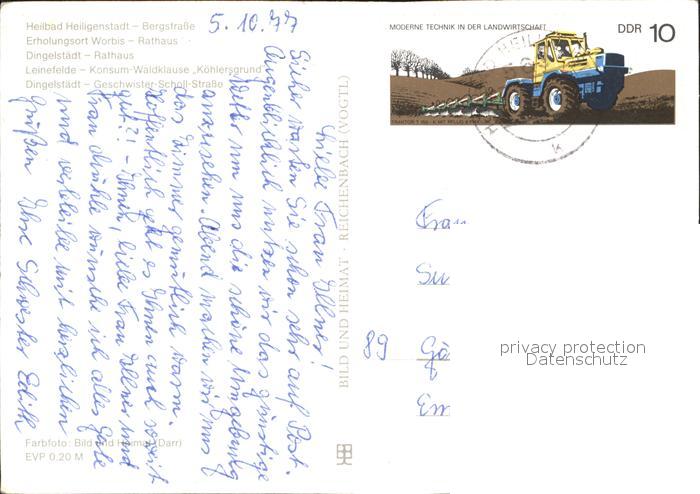 Heilbad Heiligenstadt – Bergstraße
Erholungsort Worbis – Rathaus
Dingelstädt – Rathaus
Leinefelde – Konsum-Waldklause „Köhlersgrund“
Dingelstädt – Geschwister-Scholl-Straße
5.10.77
Liebe Frau Ellner!
Sicher warten Sie schon sehr auf Post.
Augenblicklich nutzen wir das günstige
Wetter um uns die schöne Umgebung
anzusehen. Abend machen wir uns
das Zimmer gemütlich warm.
Hoffentlich geht es Ihnen auch soweit
gut?! – Ihnen, liebe Frau Ellner und
Frau Dunkle wünsche ich alles Gute
und verbleibe mit herzlichen
Grüßen Ihre Schwester Edith
Farbfoto: Bild und Heimat (Darr)
EVP 0,20 M
BILD UND HEIMAT · REICHENBACH (VOGTL)
MODERNE TECHNIK IN DER LANDWIRTSCHAFT
DDR 10
Frau
Su
89 Gö
Em
privacy protection
Datenschutz